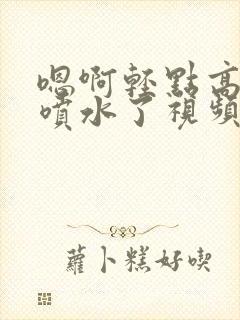 嗯啊輕點高
噴水了視頻
蘿卜糕好喫